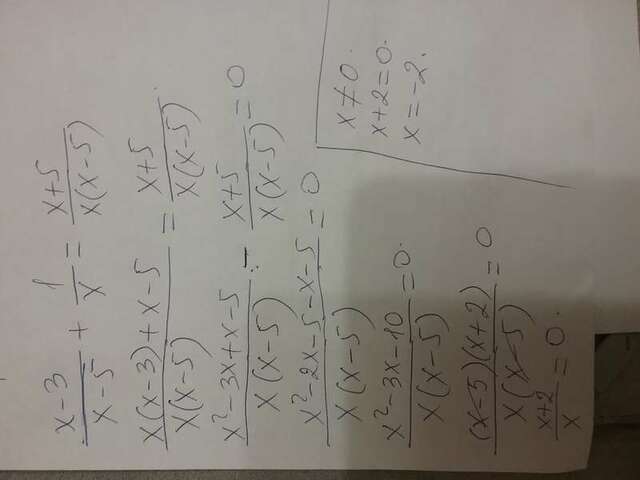 (x-3)/(x-5) + 1/x = (x+5)/(x(x-5))
(x(x-3)+x-5)/(x(x-5)) = (x+5)/(x(x-5)).
(x²-3x+x-5)/(x(x-5)) - (x+5)/(x(x-5)) = 0
(x²-2x-5-x-5)/(x(x-5)) = 0
(x²-3x-10)/(x(x-5)) = 0.
((x-5)(x+2))/(x(x-5)) = 0
(x+2)/x = 0.
x≠0.
x+2=0.
x=-2.